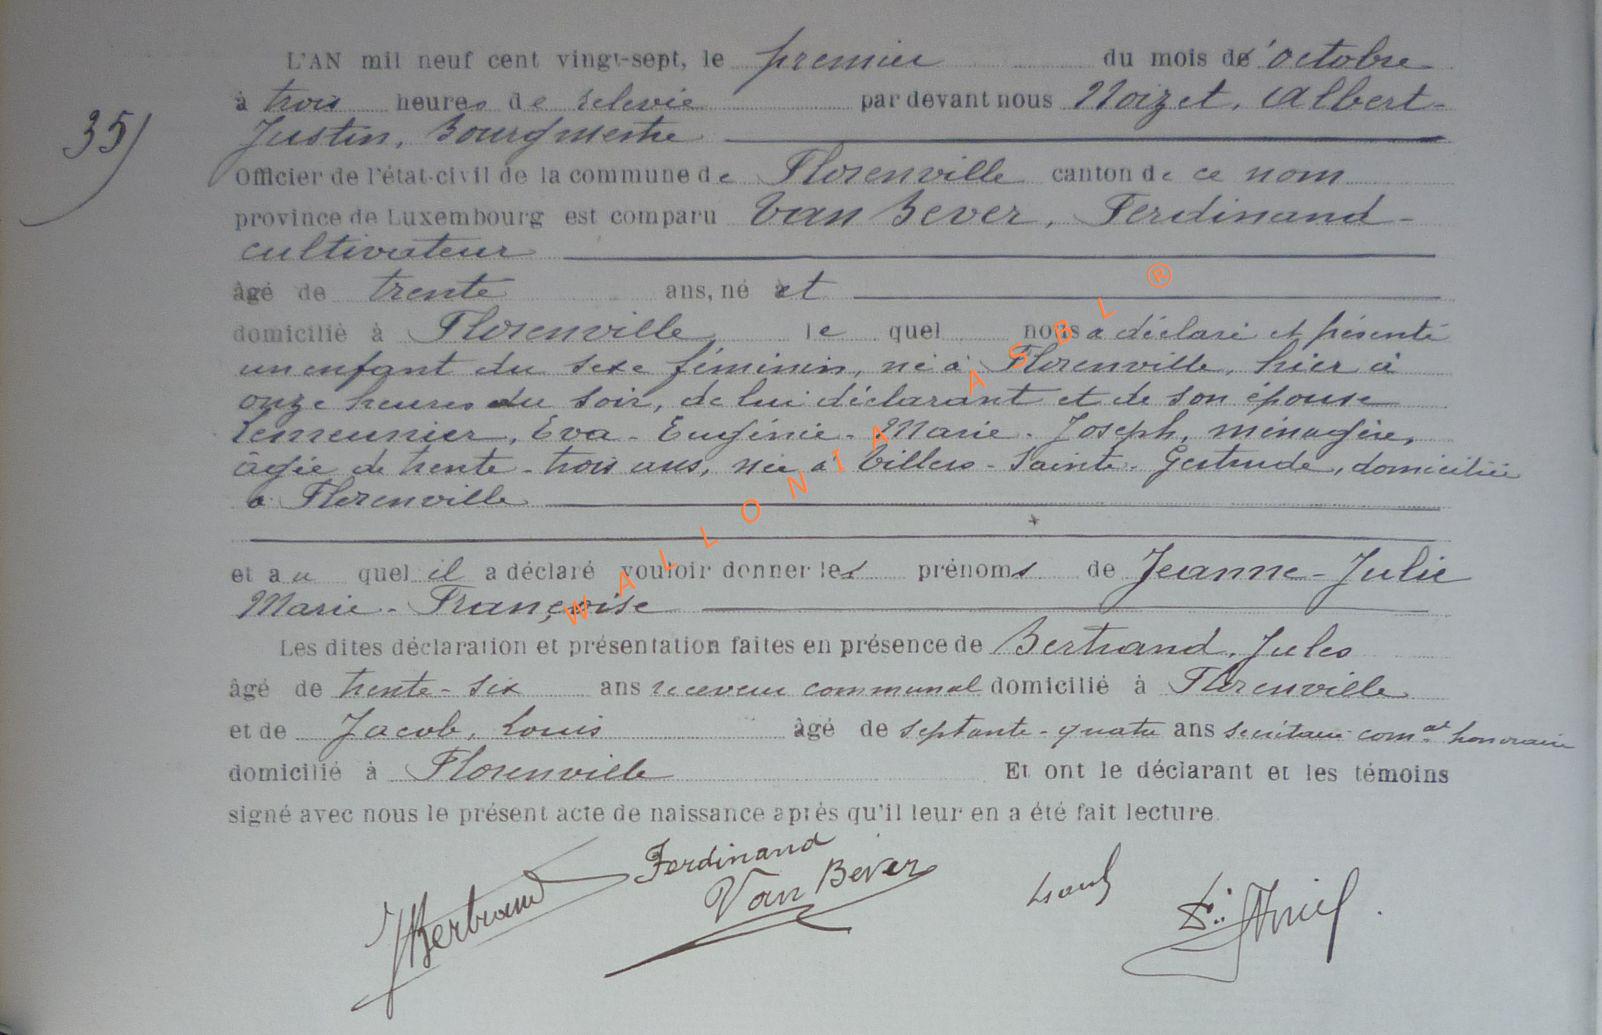 L'AN mil neuf cent vingt-sept, le premier du mois de octobre
35) à trois heures de relevée par devant nous Noizet, Albert-
Justin, Bourgmestre
Officier de l'état-civil de la commune de Florenville canton de ce nom
province de Luxembourg est comparu Van Bever, Ferdinand-
cultivateur
âgé de trente ans, né et
domicilié à Florenville, le quel nous a déclaré et présenté
un enfant du sexe féminin, né à Florenville, hier à
onze heures du soir, de lui déclarant et de son épouse
Lemeunier, Eva-Eugénie-Marie-Joseph, ménagère,
âgée de trente-trois ans, née à Villers-Sainte-Gertrude, domiciliée
à Florenville
et au quel il a déclaré vouloir donner les prénoms de Jeanne-Julie
Marie-Françoise
Les dites déclaration et présentation faites en présence de Bertrand, Jules
âgé de trente-six ans receveur communal domicilié à Florenville
et de Jacob, Louis âgé de septante-quatre ans secrétaire comal honoraire
domicilié à Florenville Et ont le déclarant et les témoins
signé avec nous le présent acte de naissance après qu'il leur en a été fait lecture.
JBertrand Ferdinand
Van Bever
WALLONIA ASBL ®